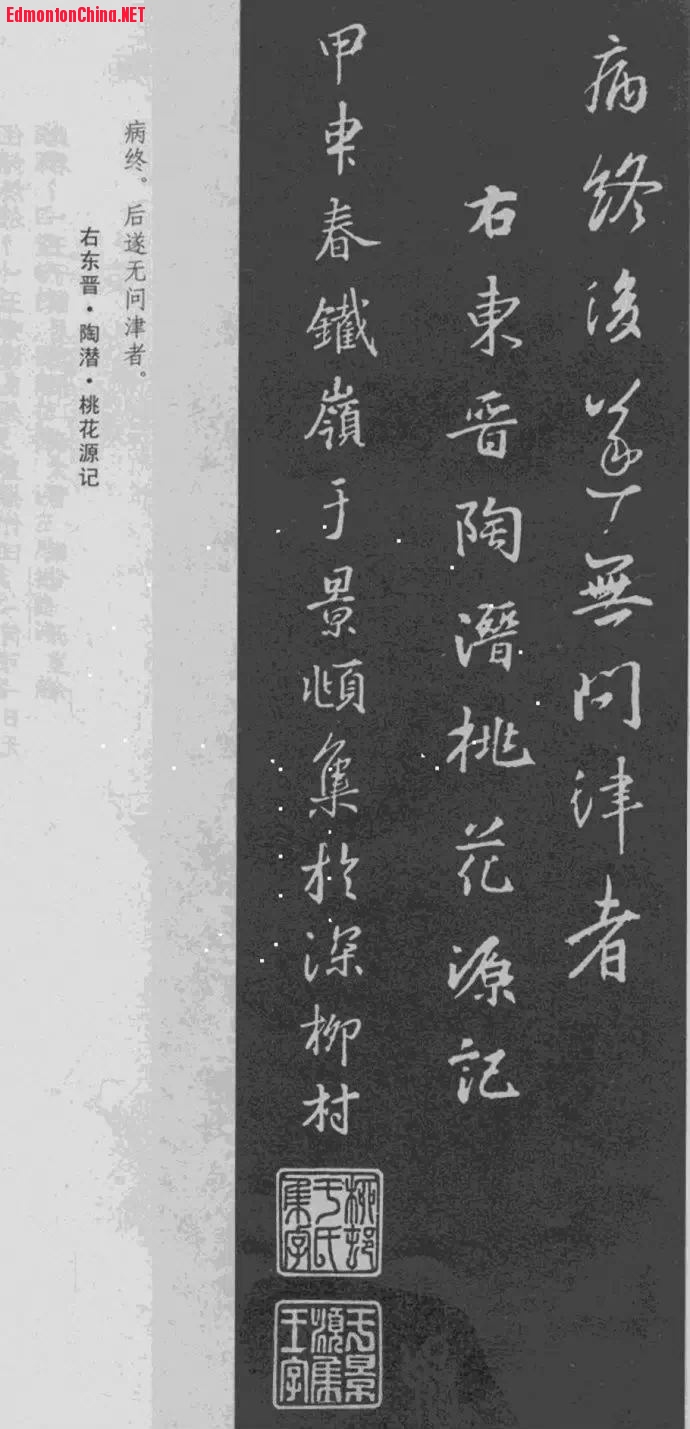 EdmontonChina.NET
病終後遂無問津者
右東晋陶潛桃花源記
甲申春鐵嶺于景頫集於深柳村
柳邨于氏集字
于景頫集王字
病终。后遂无问津者。
右东晋·陶潜·桃花源记